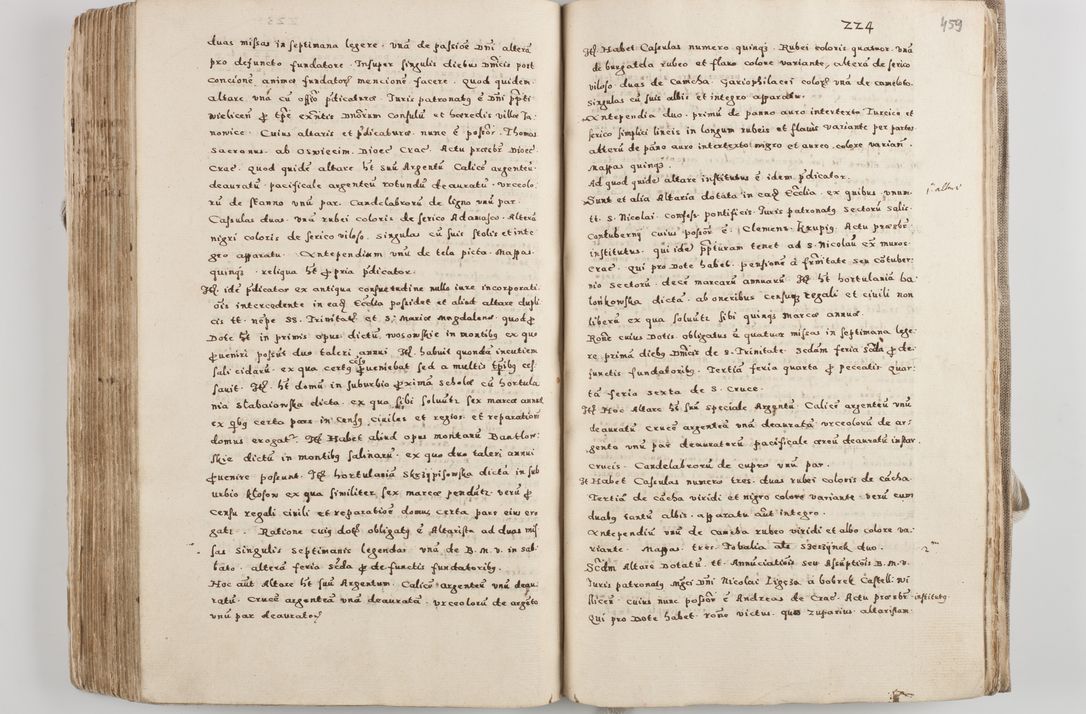 duas missas in septimana legere. unã de passiõe Dñi alterã
pro defuncto fundatore. Insuper singulis diebus Dñicis post
concionẽ animaꝝ fundatoꝝ mencionẽ facere. Quod quidem
altare unã cũ offiõ p̃dicaturæ. Iuris patronatꝯ ẽ Dñi p̃pti
Wielicen̄ ꝓ tpẽ exñtis Dnõrum Consulũ et hæredis villæ Ja-
nowice. Cuius altaris et p̃dicaturæ nunc ẽ possõr. Thomas
Sacranus ab Oswiecim Dioec̃ Crac̃. Actu præsbr̃ Dioec̃
Crac̃. Quod quidẽ altare hẽt suũ Argentũ Calicẽ argenteũ
deauratũ pacificale argenteũ rotundũ deauratũ. urceolo-
rũ de stanno unũ par. Candelabrorũ de ligno unũ par.
Casulas duas. unã rubei coloris de serico Adamasco. Alterã
nigri coloris de serico viloso. singulas cũ suis stolis et inte-
gro apparatu. Antependium unũ de tela picta. Mappas
quinqꝫ. reliqua hẽt ꝓpria p̃dicator.
Itẽ idẽ p̃dicator ex antiqua consuetudine nulla iure incorporati-
ois intercedente in eadẽ Ecclia possidet et aliud altare dupli-
cis tt. nẽpe SS. Trinitatis et S. Mariæ Magdalenæ. quod ꝓ
Dote hẽt in primis opus dictũ Wosowskie in montibꝯ ex quo
ꝓueniri possũt duo taleri annui. Itẽ habuit quondã incutiem
sali cidarũ. ex qua certꝯ census ꝓueniebat sed a multis tp̃ibꝯ ces-
sauit. Itẽ hẽt domũ in suburbio ꝓximã scholæ cũ hortula-
nia Slabaiowska dicta. ex qua sibi soluũtr sex marcæ annuæ
ex qbꝯ certa pars in censꝯ ciuiles et regios. et reparationẽ
domus erogatr. Itẽ Habet aliud opus montanũ Bantlow-
skie dictũ in montibꝯ salinarũ. ex quo duo taleri annui
ꝓuenire possunt. Itẽ hortulaniã Skrzypisowska dictã in sub-
urbio Klosow ex qua similiter sex marcæ pendũtr. verũ ꝓ
Censu regali ciuili et reparatiõe domus certa pars eius ero-
gatr. Ratione cuiꝯ dotis obligatꝯ ẽ Altarista ad duas mis-
sas singulis septimanis legendas unã de B. M. V. in sab-
bato. alterã feria 2da ꝓ defunctis fundatoribꝯ.
Hoc aũt Altare hẽt suũ Argentum. Calicẽ argenteũ unũ deau-
ratũ. Crucẽ argenteã unã deauratã. urceolorũ de argẽto
unũ par deauratoꝝ
224
459
Itẽ Habet Casulas numero quinqꝫ. Rubei coloris quatuor. unã
de burgatela rubeo et flavo colore variante, alterã de serico
viloso. duas de camcha. Gariophilacei coloris unã de cameloto.
singulas cũ suis albis et integro apparatu.
Antependia duo. primũ de panno auro intertexto Turcico et
serico simplici lineis in longum rubeis et flauis variante per partes
alterũ de pãno auro intertexto nigro et aureo colore varian̄.
Mappas quinqꝫ.
Ad quod quidẽ altare institutus ẽ idem p̃dicator.
Sunt et alia Altaria dotata in eadẽ Ecclia. ex quibus unum
tt. S. Nicolai. Confess. pontificis. Iuris patronatꝯ Sectorũ Salis
contuberny cuius possõr ẽ. Clemens Krupig. Actu præsbr̃
institutus. qui idẽ p̃pturam tenet ad S. Nicolaũ ex muros
Crac̃. qui pro Dote habet pensionẽ à frñitate seu cõtuber-
nio sectorũ. decẽ marcarũ annuarũ. Itẽ hẽt hortulaniã ba-
lonkowska dictã. ab oneribus censuꝫ regali et ciuili non
liberã. ex qua soluũtr sibi quinqꝫ marcæ annuæ.
Roñe cuius Dotis obligatus ẽ quatuor missas in septimana lege-
re. primã diebꝯ Dñicis de S. Trinitate. secdam feria 2da ꝓ de-
functis fundatoribꝯ. Tertiã feria quarta ꝓ peccatis. quar-
tã feria sexta de S. Cruce.
Itẽ Hoc Altare hẽt suũ speciale Argentũ. Calicẽ argenteũ unũ
deauratũ Crucẽ argenteã unã deauratã. urceolorũ de ar-
gento unũ par deauratorũ. pacificale æreũ deauratũ instar
crucis. Candelabrorũ de cupro unũ par.
It Habet Casulas numero tres. duas rubei coloris de cãcha.
Tertiã de cãcha viridi et nigro colore variante. verũ cum
duabꝯ tantũ albis. apparatu aũt integro.
Antependiũ unũ de camcha rubeo viridi et albo colore va-
riante. Mappas tres. Tobalia als Szerzynek duo.
Secdm Altare Dotatũ. tt. Annũciatiois seu Assũptiois B. M. V.
Iuris patronatꝯ Mgci Dñi Nicolai Ligęza à Bobrek Castell: Wi-
slicen̄. cuius nunc possõr ẽ Andreas de Crac̃. Actu præsbr̃ institutꝯ
Qui pro Dote habet roñe victus. quos Zuparius altaristam
1m Altare
2m